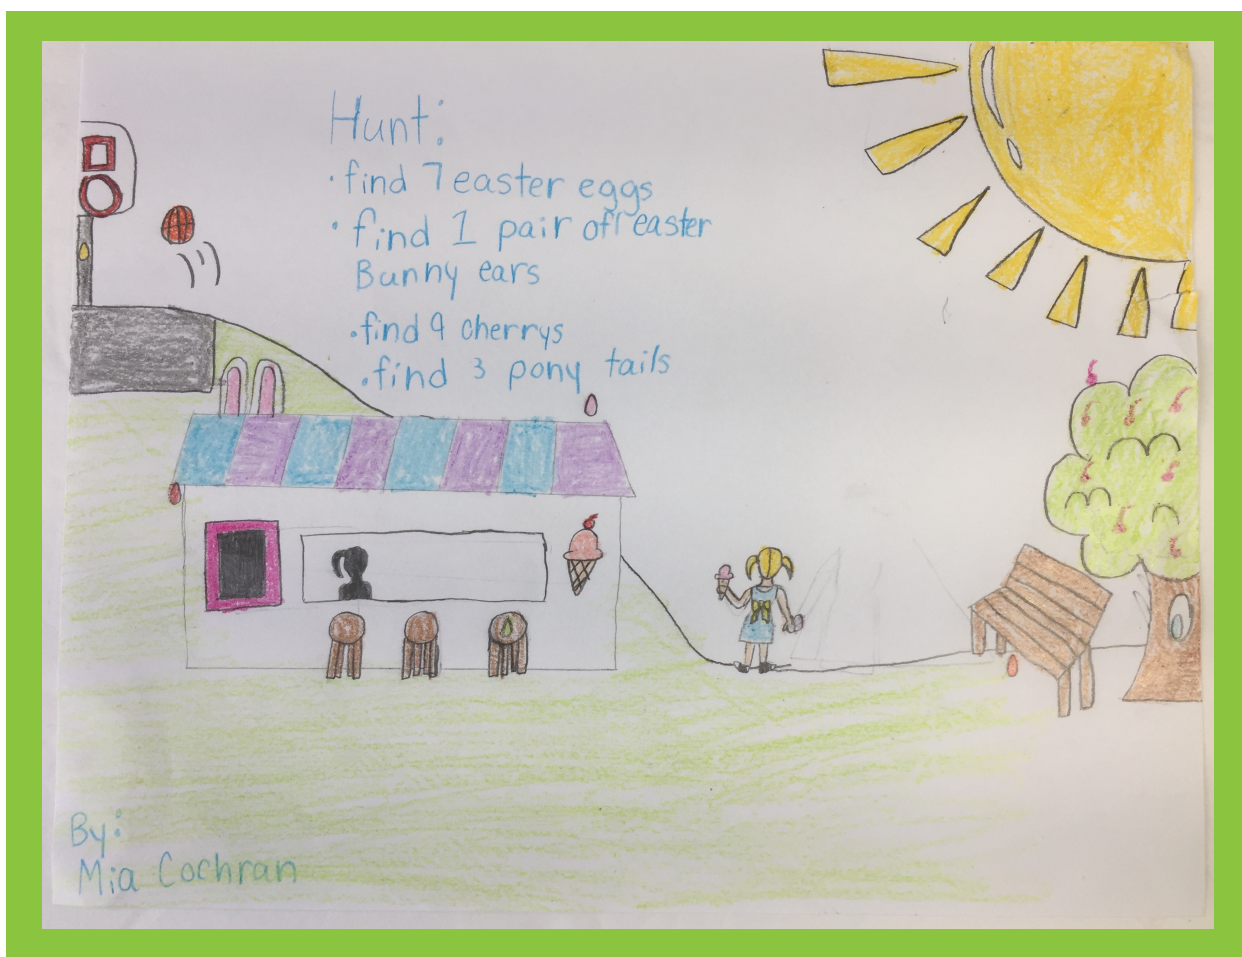 Hunt:
• find 7 easter eggs
• find 1 pair off easter
Bunny ears
• find 9 cherrys
• find 3 pony tails
By:
Mia Cochran